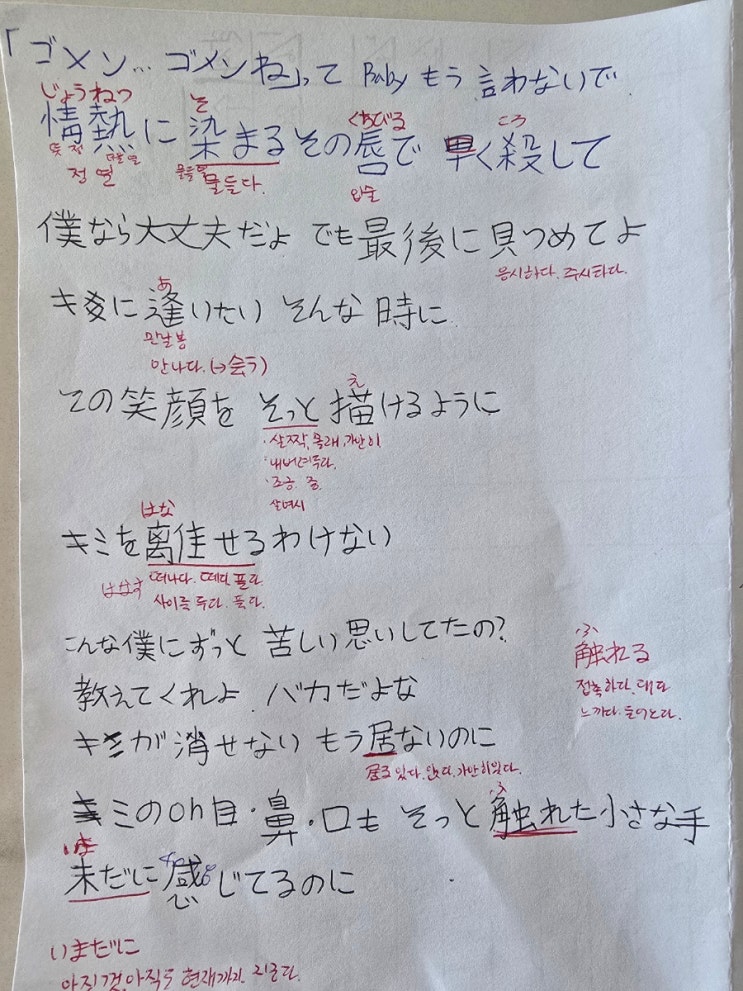 「ゴメン… ゴメンね」って Baby もう 言わないで
じょうねつ そ くちびる ころ
情熱に 染まる その唇で 早く殺して
뜻 정 더울 열 물들 염
전열 물들다. 입술
僕なら大丈夫だよ でも最後に見つめてよ
응시하다. 주시하다.
あ
キミに逢いたい そんな時に
만날봉
만나다. (→会う)
え
その笑顔を そっと 描けるように
・살짝, 몰래, 가만히
・내버려두다.
・조금. 좀.
살며시
はな
キミを離せるわけない
はなす 떠나다. 떼다. 풀다.
사이를 두다. 놓다.
こんな僕にずっと 苦しい思いしてたの?
ふ
触れる
접촉하다. 대다
느끼다. 들어오다.
教えてくれよ バカだよな
キミが消せない もう居ないのに
居る 있다. 앉다. 가만히있다.
ふ
キミのoh目・鼻・口も そっと触れた小さな手
いま
未だに感じてるのに
いまだに
아직껏, 아직도 현재까지. 지금다.